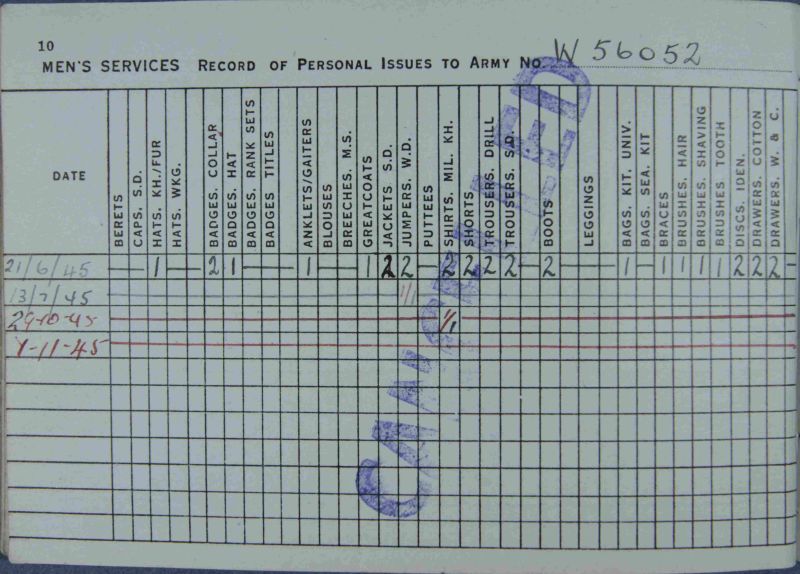 10
MEN'S SERVICES RECORD OF PERSONAL ISSUES TO ARMY No W 56052
DATE
BERETS
CAPS. S.D.
HATS. KH./FUR
HATS. WKG.
BADGES. COLLAR
BADGES. HAT
BADGES. RANK SETS
BADGES TITLES
ANKLETS/GAITERS
BLOUSES
BREECHES. M.S.
GREATCOATS
JACKETS S.D.
JUMPERS. W.D.
PUTTEES
SHIRTS. MIL. KH.
SHORTS
TROUSERS. DRILL
TROUSERS. S.D.
BOOTS
LEGGINGS
BAGS. KIT. UNIV.
BAGS. SEA. KIT
BRACES
BRUSHES. HAIR
BRUSHES. SHAVING
BRUSHES TOOTH
DISCS. IDEN.
DRAWERS. COTTON
DRAWERS. W. & C.
21/6/45 — 1 — 2 1 — 1 — 1 2 2 — 2 2 2 2 — 2 — 1 — 1 1 1 1 2 2 2 —
13/7/45 1/1
29-10-45 1/1
7-11-45
CANCELLED